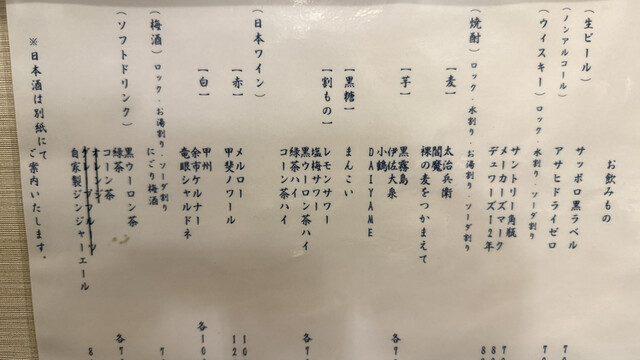 お飲みもの
(生ビール)
サッポロ黒ラベル
(ノンアルコール)
アサヒドライゼロ
(ウィスキー) ロック・水割り・ソーダ割り
サントリー角瓶
メーカーズマーク
デュワーズ12年
(焼酎) ロック・水割り・お湯割り・ソーダ割り
【麦】
太治兵衛
閻魔
裸の麦をつかまえて
【芋】
黒霧島
伊佐大泉
小鶴
DAIYAME
【黒糖】
まんこい
【割もの】
レモンサワー
塩梅サワー
黒ウーロン茶ハイ
緑茶ハイ
コーン茶ハイ
(日本ワイン)
【赤】
メルロー
甲斐ノワール
【白】
甲州
余市ケルナー
竜眼シャルドネ
(梅酒) ロック・お湯割り・ソーダ割り
にごり梅酒
(ソフトドリンク)
黒ウーロン茶
緑茶
コーン茶
自家製ジンジャーエール
※日本酒は別紙にて
ご案内いたします。